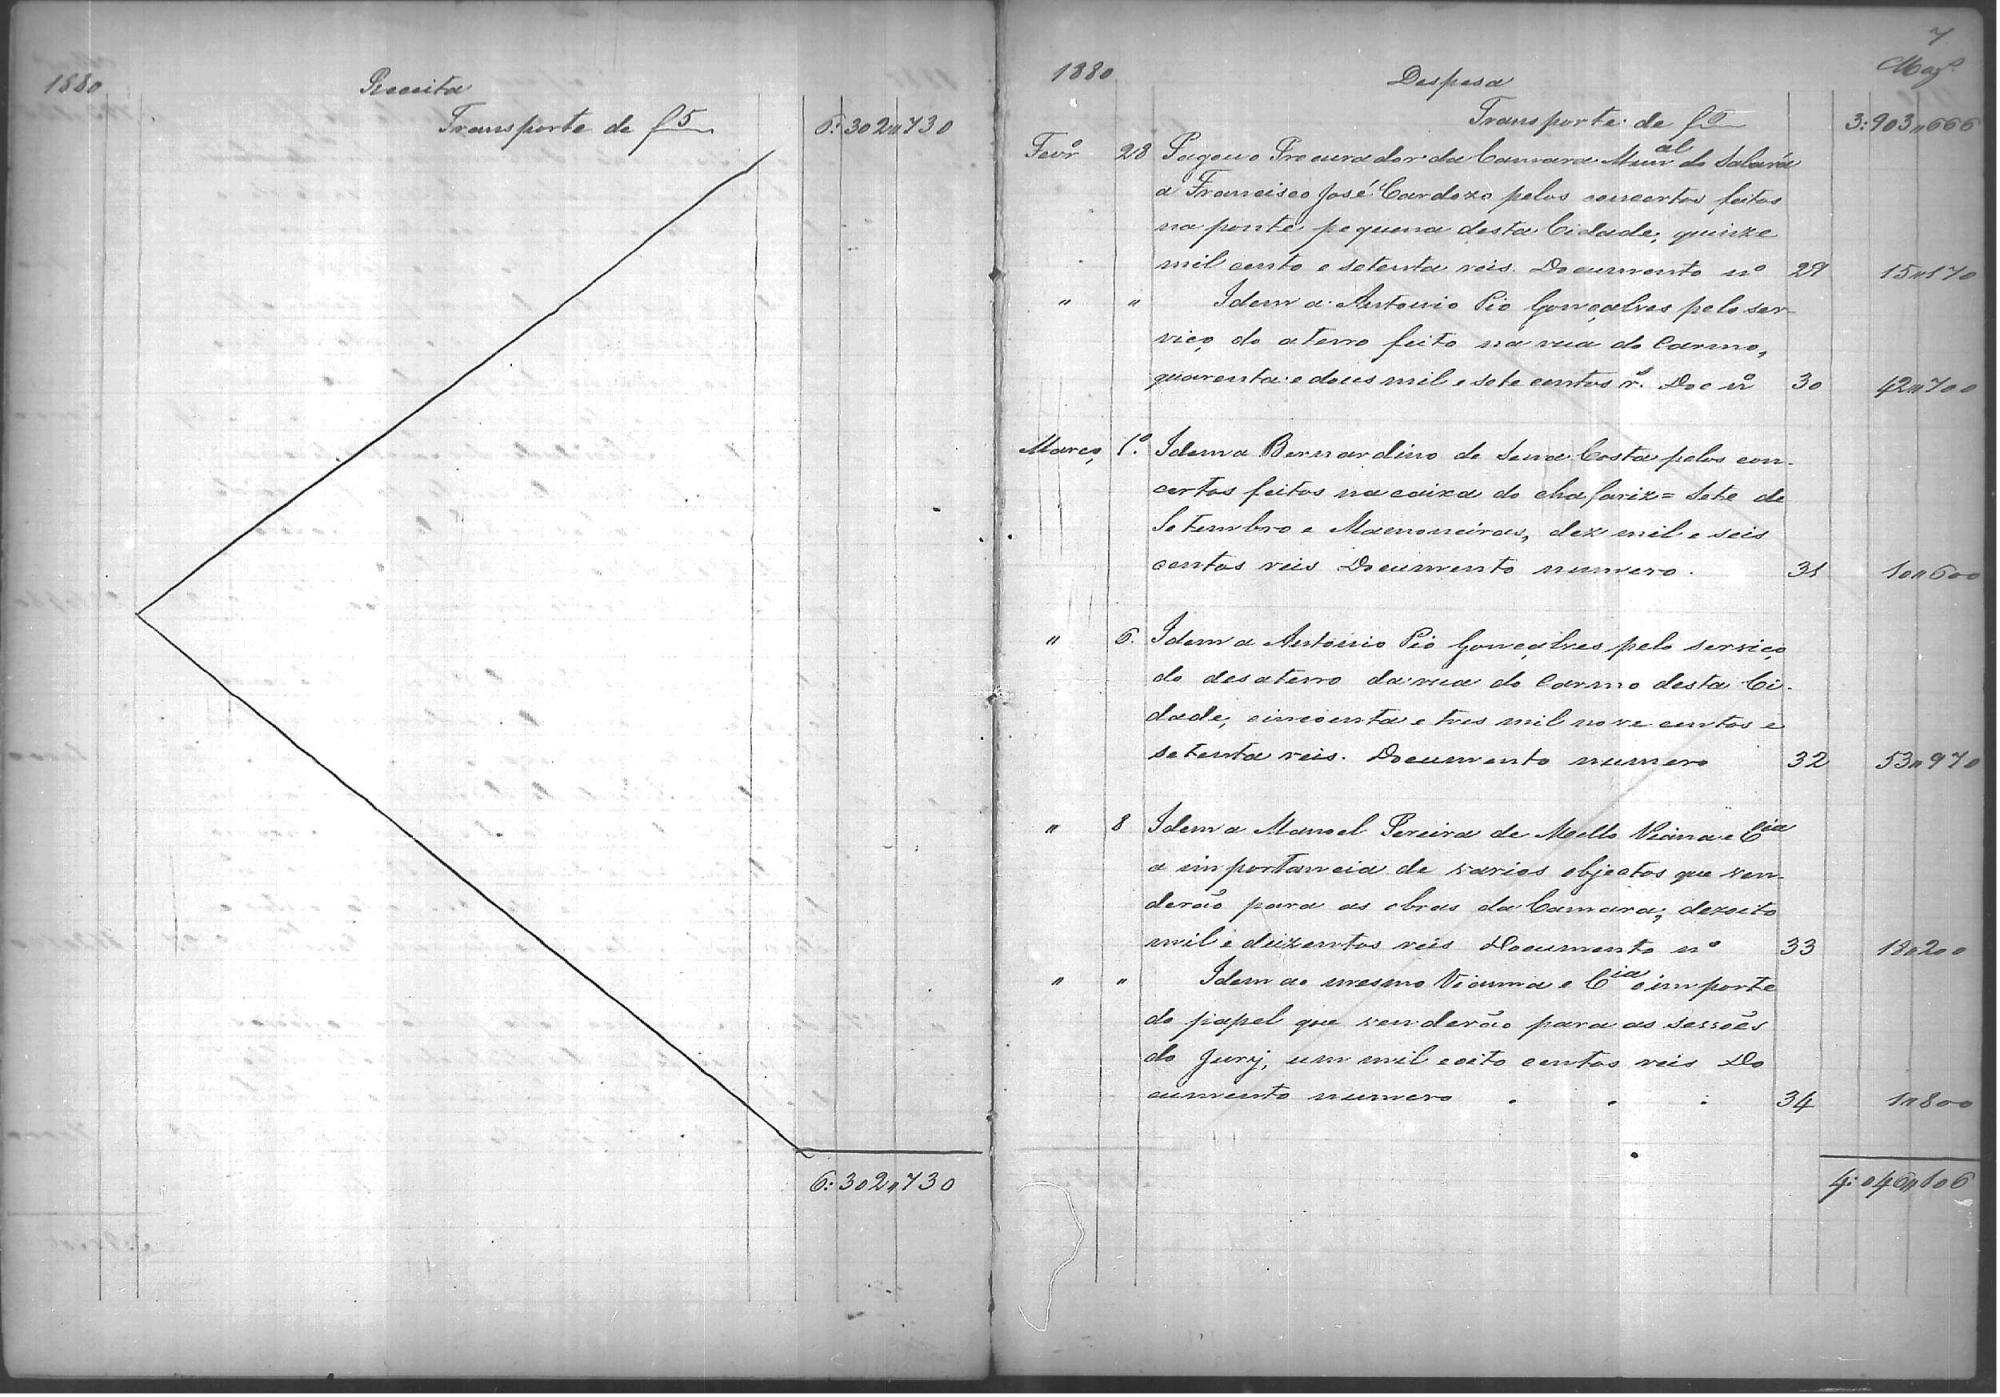 1880
Receita
Transporte de f 5
6:302"730
6:302"730
7
1880
Despesa
Transporte de f
3:903"666
Fevrº 28 Pagou o Procurador da Camara Munal do Sabará
a Francisco José Cardozo pelos concertos feitos
na ponte pequena desta Cidade, quinze
mil cento e setenta reis. Documento nº 29 15"170
" " Idem a Antonio Pio Gonçalves pelo ser-
viço do aterro feito na rua do Carmo,
quarenta e dous mil e sete centos rs. Doc nº 30 42"700
Março 1º. Idem a Bernardino de Sena Costa pelos con-
certos feitos na caixa do chafariz = Sete de
Setembro e Mamoneiras, dez mil e seis
centos reis Documento numero. 31 10"600
" 6. Idem a Antonio Pio Gonçalves pelo serviço
do desaterro da rua do Carmo desta Ci-
dade, cincoenta e tres mil nove centos e
setenta reis. Documento numero 32 53"970
" 8 Idem a Manoel Pereira de Mello Viana e Cia
a importancia de varios objectos que ven-
derão para as obras da Camara, dezoito
mil e duzentos reis Documento nº 33 18"200
" " Idem ao mesmo Vianna e Cia o importe
do papel que venderão para as sessões
do Jury, um mil e oito centos reis Do
cumento numero . . . 34 1"800
4:046"106